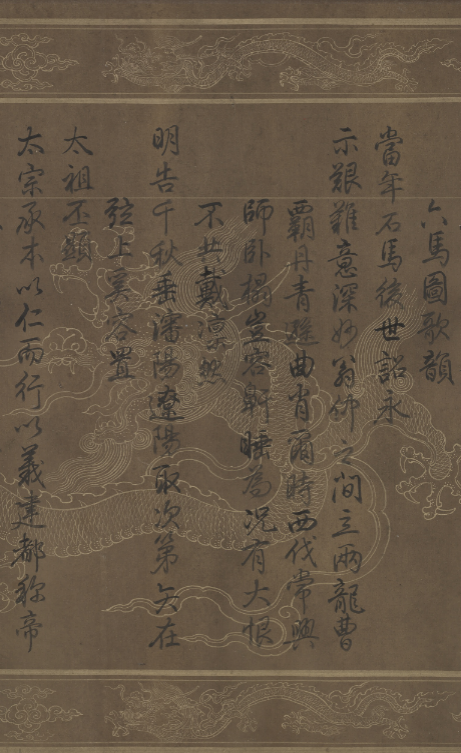 六馬圖歌韻
當年石馬後世詔永
示艱難意深妙翁仲之間立兩龍曹
霸丹青雖曲肖爾時西伐常興
師卧榻豈容鼾睡為況有大恨
不共戴凛然
明告千秋垂瀋陽遼陽取次第矢在
弦上奚容置
太祖丕顯
太宗承本以仁而行以義建都稱帝